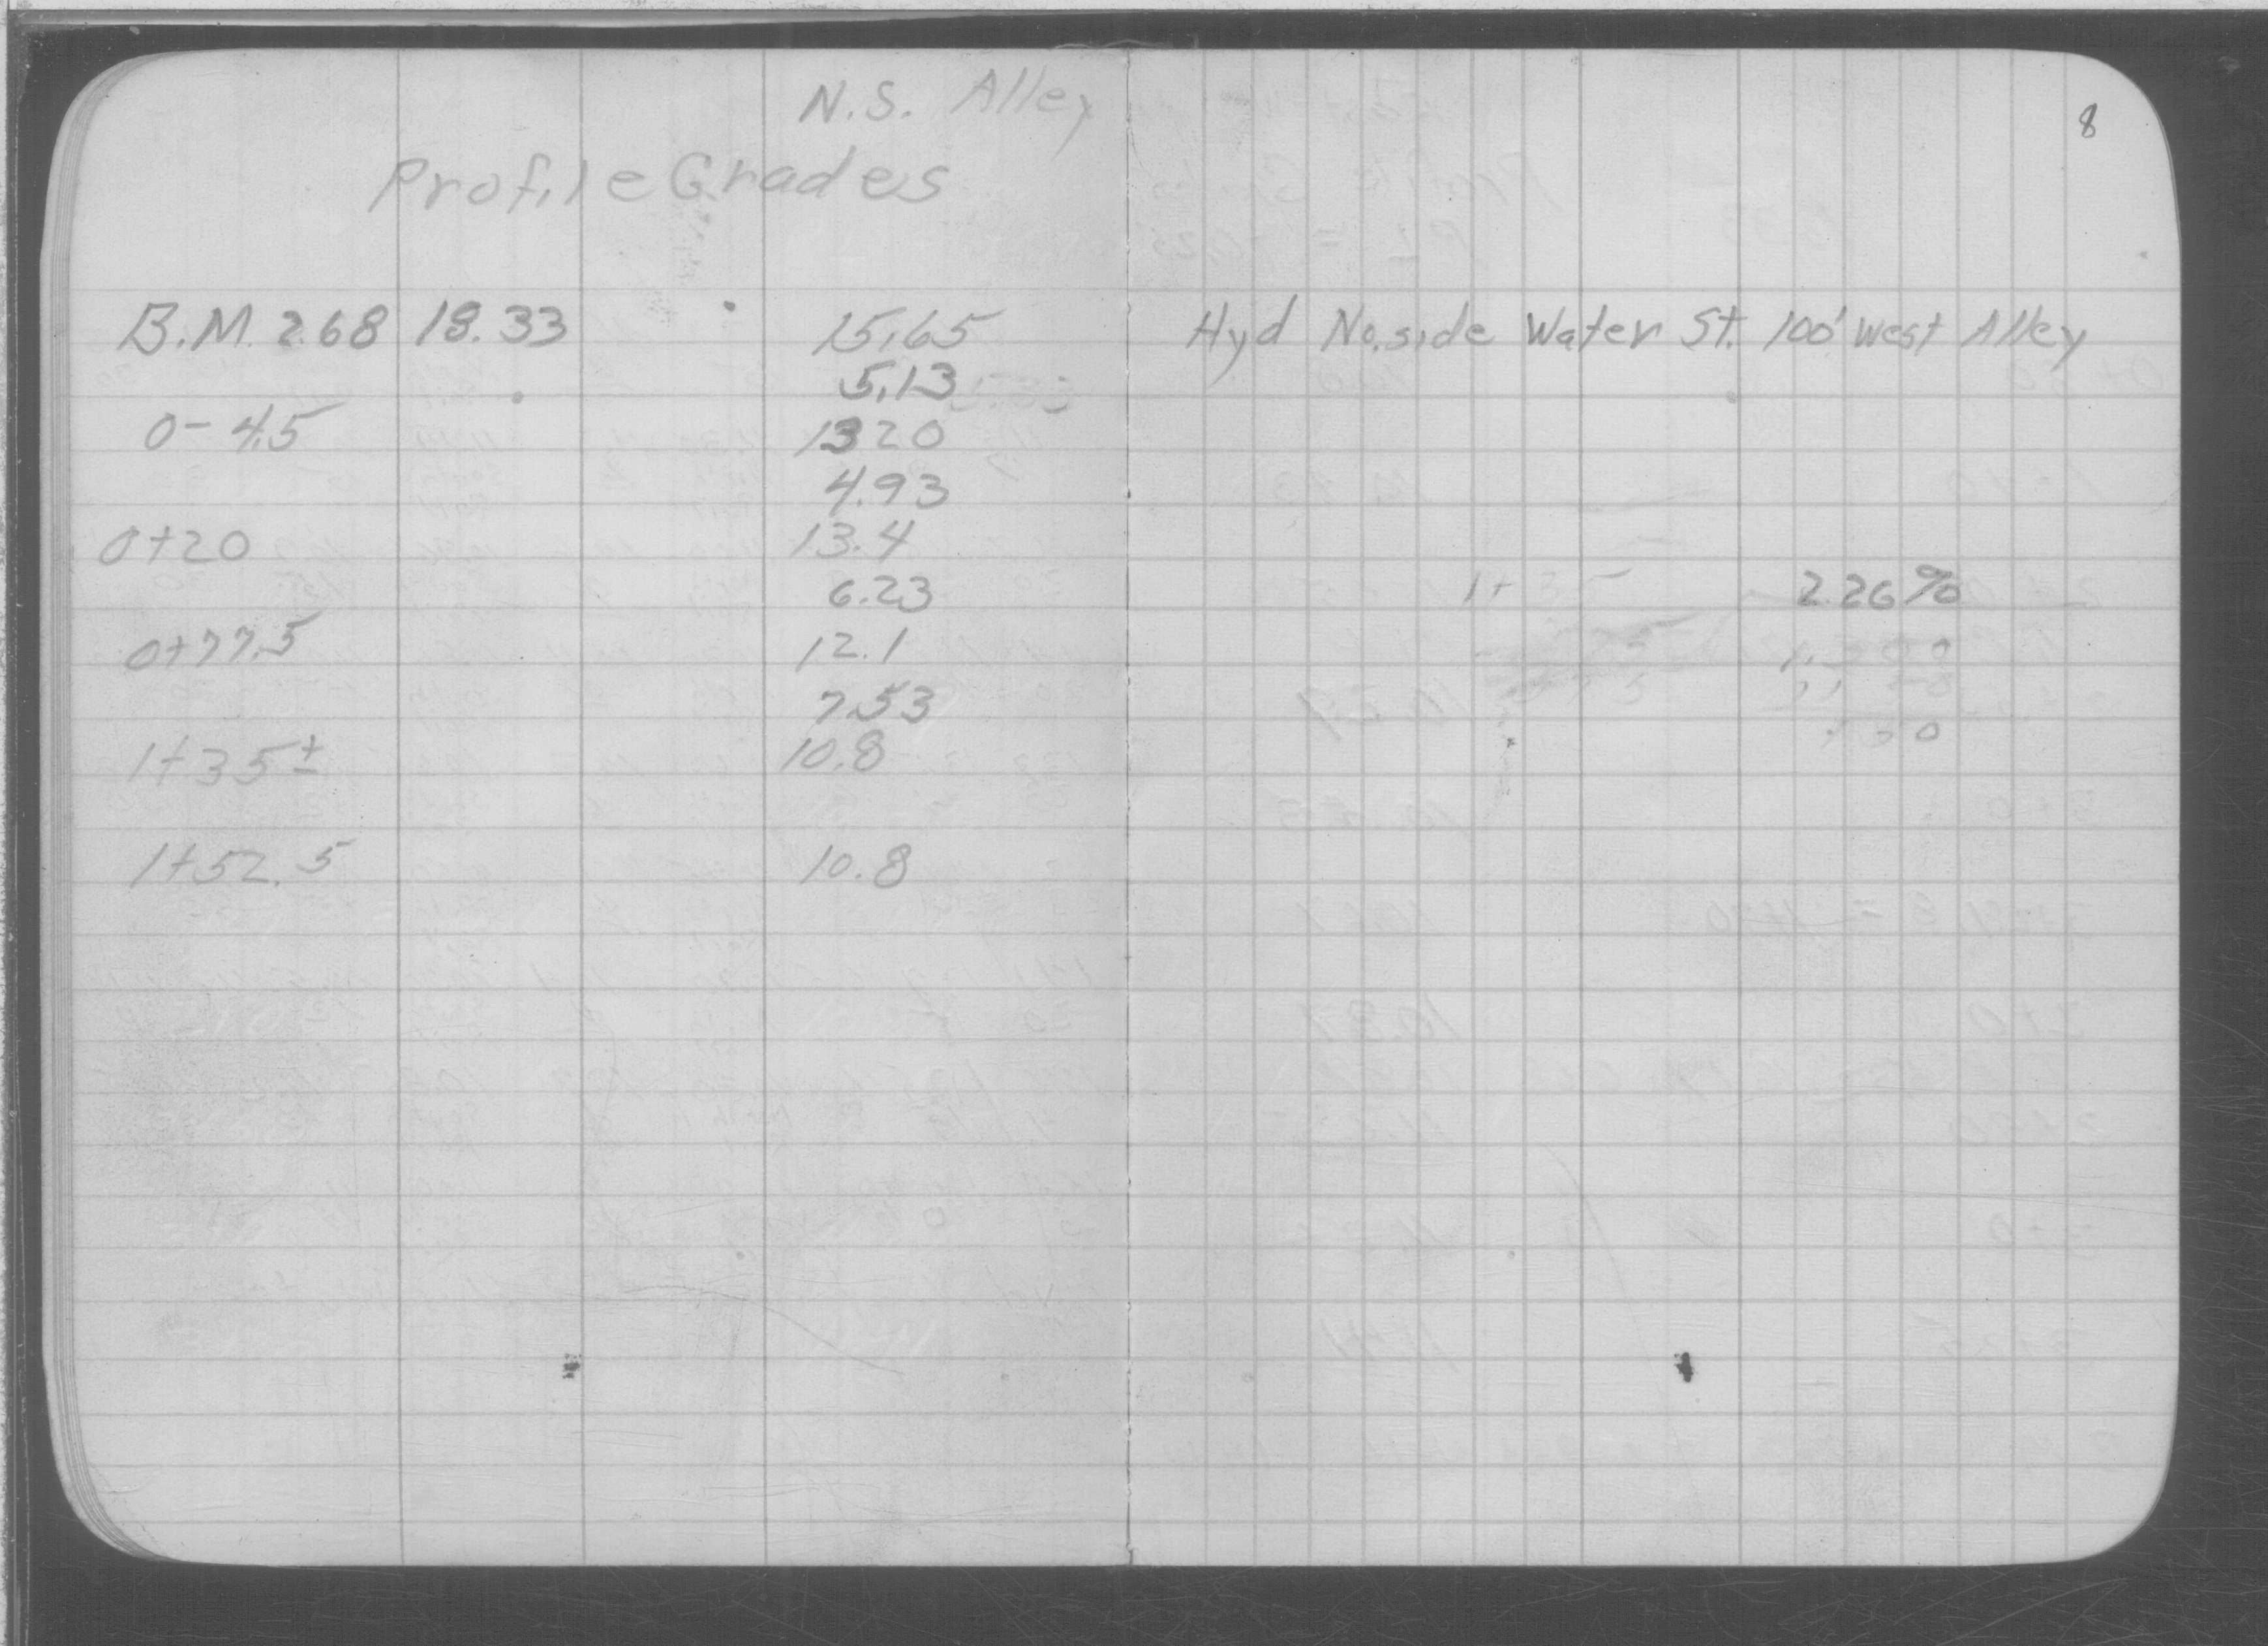 N.S. Alley
8
Profile Grades
B.M. 2.68 18.33 15.65 Hyd No. side Water St. 100' West Alley
5.13
0-4.5 1320
4.93
0+20 13.4
6.23 1+35 2.26%
0+77.5 12.1
7.53
1+35± 10.8
1+52.5 10.8